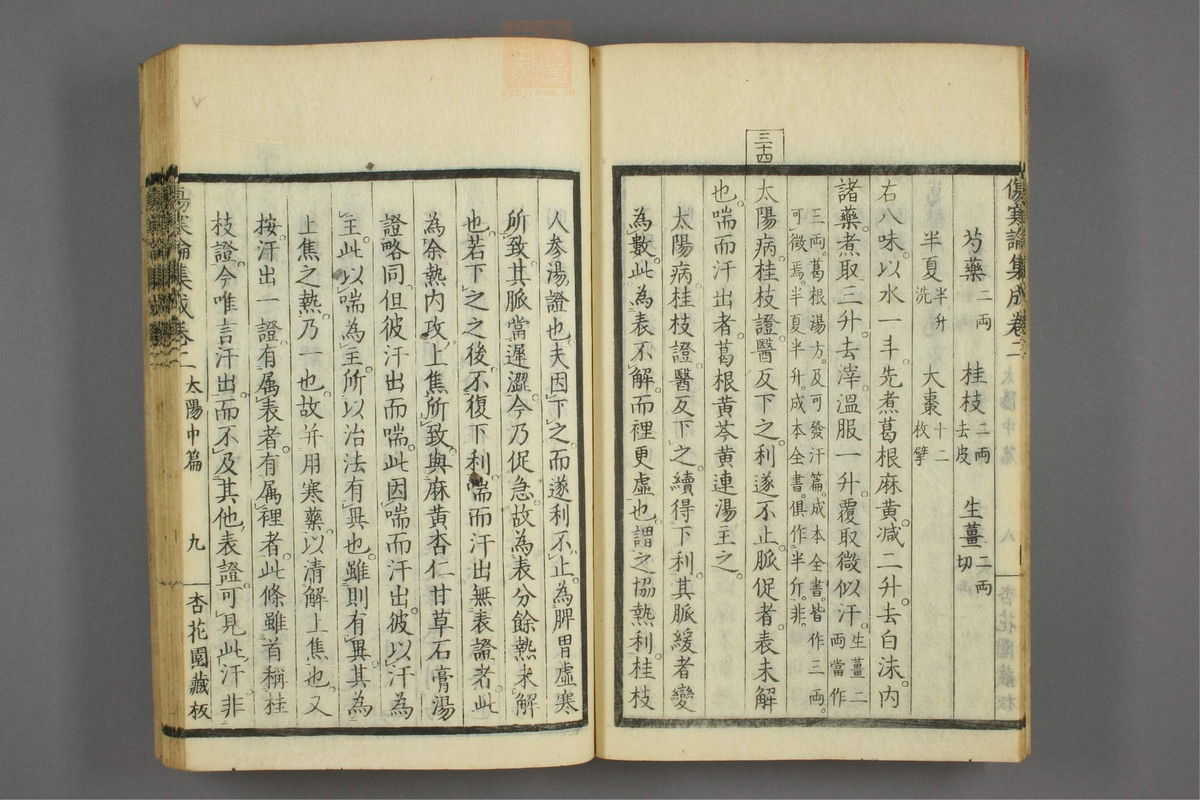 傷寒論集成卷二
芍藥二両　桂枝二両去皮　生薑二両切
半夏半升洗　大棗十二枚擘
右八味。以水一斗。先煮葛根麻黃。减二升。去白沫。内
諸藥。煮取三升。去滓。溫服一升。覆取微似汗。生薑二両當作
三両。葛根湯方。及可發汗篇。成本全書。皆作三両。可徵焉。半夏半升。成本全書。俱作半斤。非。
三十四
太陽病。桂枝證。醫反下之。利遂不止。脈促者。表未解
也。喘而汗出者。葛根黃芩黃連湯主之。
太陽病。桂枝證。醫反下之。續得下利。其脈緩者變
為數。此為表不解。而裡更虛也。謂之協熱利。桂枝
人參湯證也。夫因下之。而遂利不止。為脾胃虛寒
所致。其脈當遲澀。今乃促急。故為表分餘熱未解
也。若下之之後。不復下利。喘而汗出。無表證者。此
為余熱内攻上焦所致。與麻黃杏仁甘草石膏湯
證略同。但彼汗出而喘。此因喘而汗出。彼以汗為
主。此以喘為主。所以治法有異也。雖則有異。其為
上焦之熱。乃一也。故并用寒藥。以清解上焦也。又
按。汗出一證。有属表者。有属裡者。此條雖首稱桂
枝證。今唯言汗出。而不及其他表證。可見此汗非
傷寒論集成卷二　太陽中篇　九　杏花園藏板